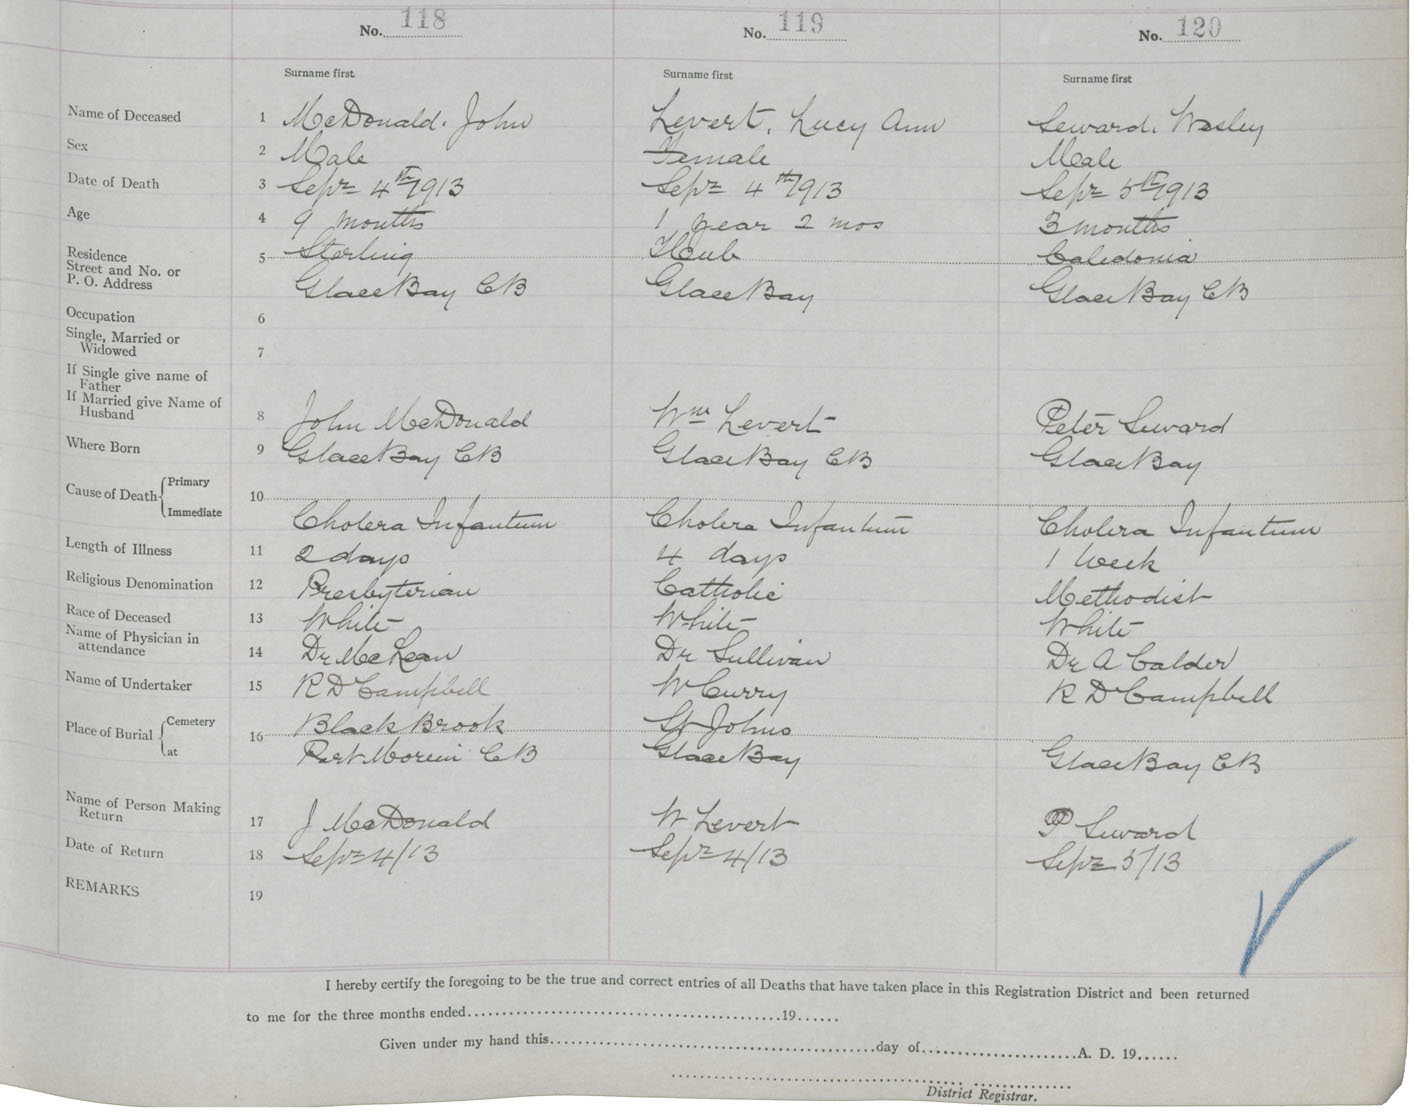 No. 118 No. 119 No. 120
Surname first Surname first Surname first
Name of Deceased 1 McDonald. John Levert, Lucy Ann Seward. Wesley
Sex 2 Male Female Male
Date of Death 3 Sept 4th 1913 Sept 4th 1913 Sept 5th 1913
Age 4 9 months 1 year 2 mos 3 months
Residence 5 Sterling Hub Caledonia
Street and No. or
P. O. Address Glace Bay CB Glace Bay Glace Bay CB
Occupation 6
Single, Married or
Widowed 7
If Single give name of
Father
If Married give Name of
Husband 8 John McDonald Wm Levert Peter Seward
Where Born 9 Glace Bay CB Glace Bay CB Glace Bay
Cause of Death Primary 10
Immediate Cholera Infantum Cholera Infantum Cholera Infantum
Length of Illness 11 2 days 4 days 1 week
Religious Denomination 12 Presbyterian Catholic Methodist
Race of Deceased 13 White White White
Name of Physician in
attendance 14 Dr McLean Dr Sullivan Dr A Calder
Name of Undertaker 15 R D Campbell W Curry R D Campbell
Place of Burial Cemetery 16 Black Brook St Johns
at Port Morien CB Glace Bay Glace Bay CB
Name of Person Making
Return 17 J McDonald W Levert P Seward
Date of Return 18 Sept 4/13 Sept 4/13 Sept 5/13
REMARKS 19
I hereby certify the foregoing to be the true and correct entries of all Deaths that have taken place in this Registration District and been returned
to me for the three months ended 19
Given under my hand this day of A. D. 19
District Registrar.